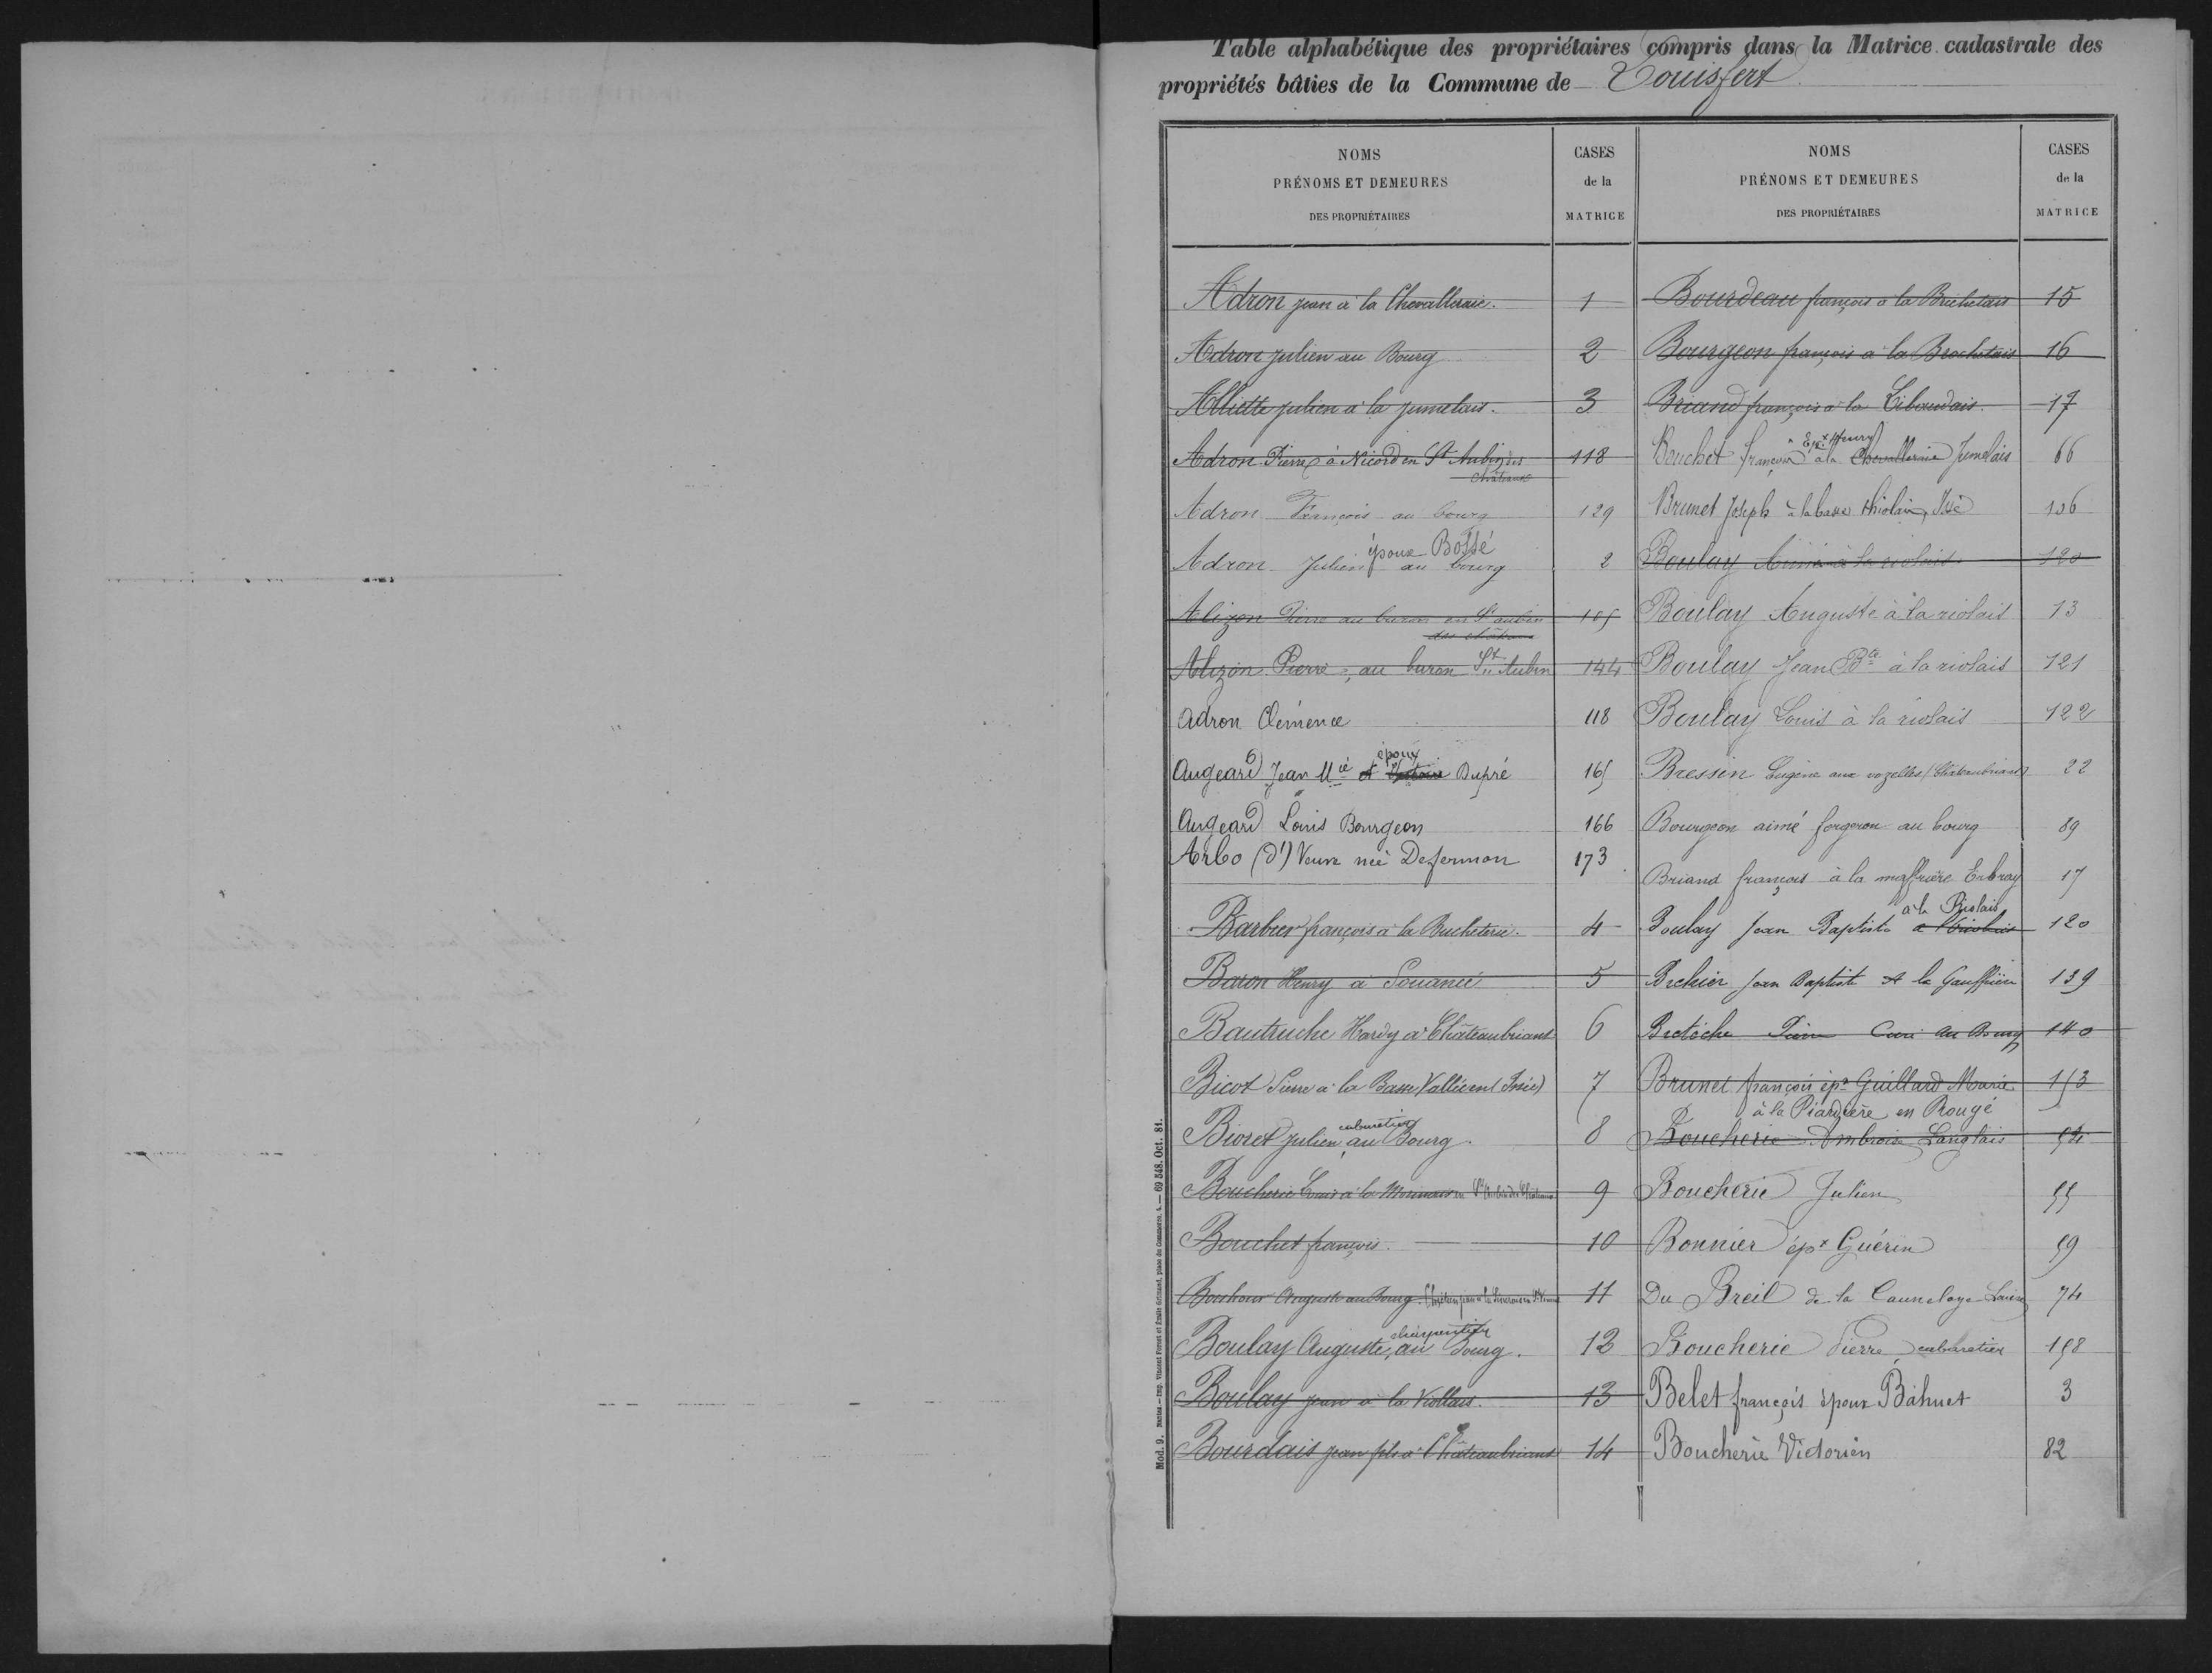 Table alphabétique des propriétaires compris dans la Matrice cadastrale des
propriétés bâties de la Commune de Louisfert
NOMS
PRÉNOMS ET DEMEURES
DES PROPRIÉTAIRES
CASES
de la
MATRICE
Adron jean à la Chevalleraie. 1
Adron julien au Bourg 2
Alliette julien à la jumelais. 3
Adron Pierre à Nicord en St Aubin des
châteaux 118
Adron François au bourg 129
époux Bossé
Adron Julien au bourg 2
Alizon Pierre au buron en St aubin
des châteaux 105
Alizon Pierre, au buron St Aubin 144
Adron Clémence 118
époux
Augeard Jean Mie et Dupré 165
Augeard Louis Bourgeon 166
Arbo (d') Veuve née Defermon 173
Barbier françois à la Bucheterie. 4
Baron Henry à Souancé 5
Bautruche Hardy à Châteaubriant 6
Bicot Pierre à la Basse Vallière (Issé) 7
cabaretier
Bioret julien au Bourg. 8
Boucherie Louis à la Monnais en St Aubin des Châteaux 9
Bouchet françois. 10
Bouhour Auguste au Bourg. 11
charpentier
Boulay Auguste, au Bourg. 12
Boulay jean à la Riollais. 13
Bourdais jean fils à Châteaubriant 14
NOMS
PRÉNOMS ET DEMEURES
DES PROPRIÉTAIRES
CASES
de la
MATRICE
Bourdeau françois à la Brichetais 15
Bourgeon françois à la Brochetais 16
Briand françois à la Ribaudais 17
Epx Henry
Bouchet françois à la Chevalleraie Jumelais 66
Brunet Joseph à la basse Issé 106
Boulay à la riolais 120
Boulay Auguste à la riolais 13
Boulay Jean Bte à la riolais 121
Boulay Louis à la riolais 122
Bressin Eugène aux vozelles (Châteaubriant) 22
Bourgeon aimé forgeron au bourg 89
Briand françois à la Erbray 17
à la Riolais
Boulay Jean Baptiste 120
Brehier Jean Baptiste à la Gauffrière 139
Bretéche Pierre Curé au Bourg 140
Brunet françois épx Guillard Marie 153
à la Piardière en Rougé
Boucherie Ambroise Langlais 54
Boucherie Julien 55
Bonnier épx Guérin 59
Du Breil de la Caunelaye Louise 74
Boucherie Pierre, cabaretier 158
Belet françois époux Bahuet 3
Boucherie Victorien 82
Mod. 9. Nantes — Imp. Vincent Forest et Émile Grimaud, place du Commerce, 4. — 69 348. Oct. 81.